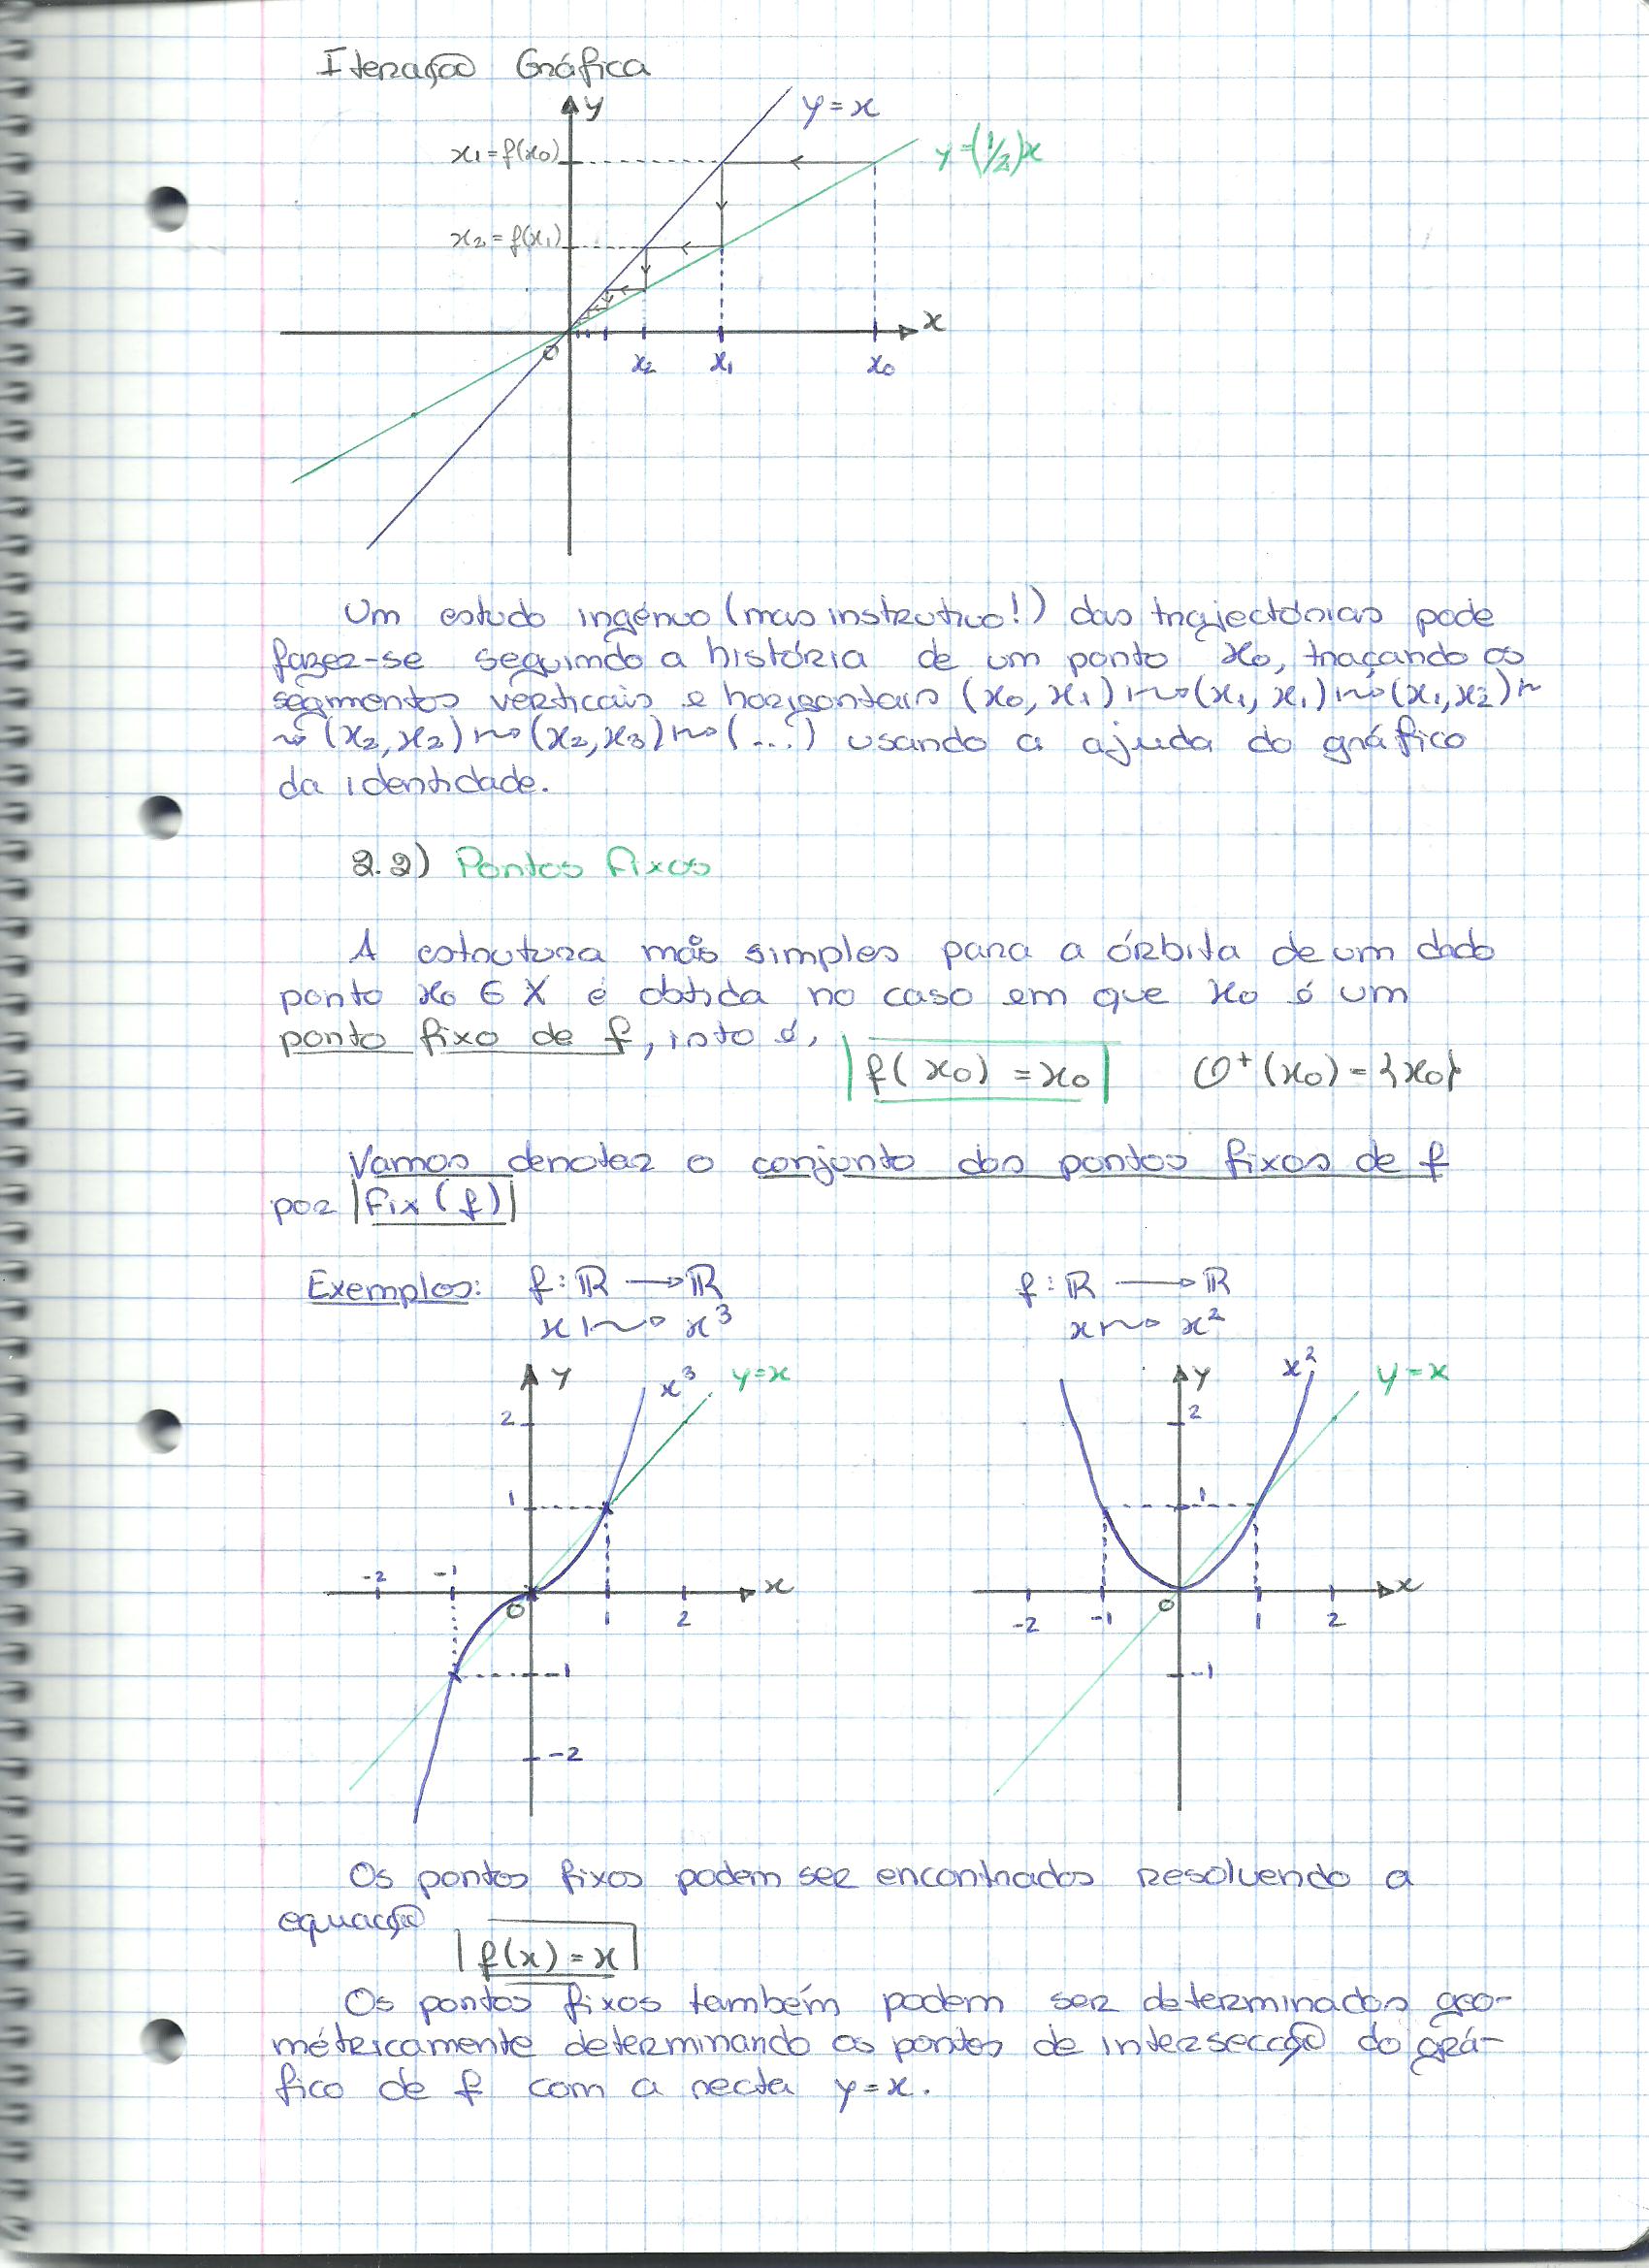 Iteração Gráfica
y
y=x
x₁=f(x₀)
y=(1/2)x
x₂=f(x₁)
x
0
x₂ x₁ x₀
Um estudo ingénuo (mas instrutivo!) das trajectórias pode
fazer-se seguindo a história de um ponto x₀, traçando os
segmentos verticais e horizontais (x₀, x₁) ⇝ (x₁, x₁) ⇝ (x₁, x₂) ⇝
⇝ (x₂, x₂) ⇝ (x₂, x₃) ⇝ (...) usando a ajuda do gráfico
da identidade.
2.2) Pontos fixos
A estrutura mais simples para a órbita de um dado
ponto x₀ ∈ X é obtida no caso em que x₀ é um
ponto fixo de f, isto é,
f(x₀) = x₀ O⁺(x₀) = {x₀}
Vamos denotar o conjunto dos pontos fixos de f
por |fix(f)|
Exemplos: f: ℝ ⟶ ℝ f: ℝ ⟶ ℝ
x ⇝ x³ x ⇝ x²
y x³ y=x y x² y=x
2 2
1 1
-2 -1 x x
0 1 2 -2 -1 0 1 2
-1 -1
-2
Os pontos fixos podem ser encontrados resolvendo a
equação
|f(x) = x|
Os pontos fixos também podem ser determinados geo-
métricamente determinando os pontos de intersecção do grá-
fico de f com a recta y=x.